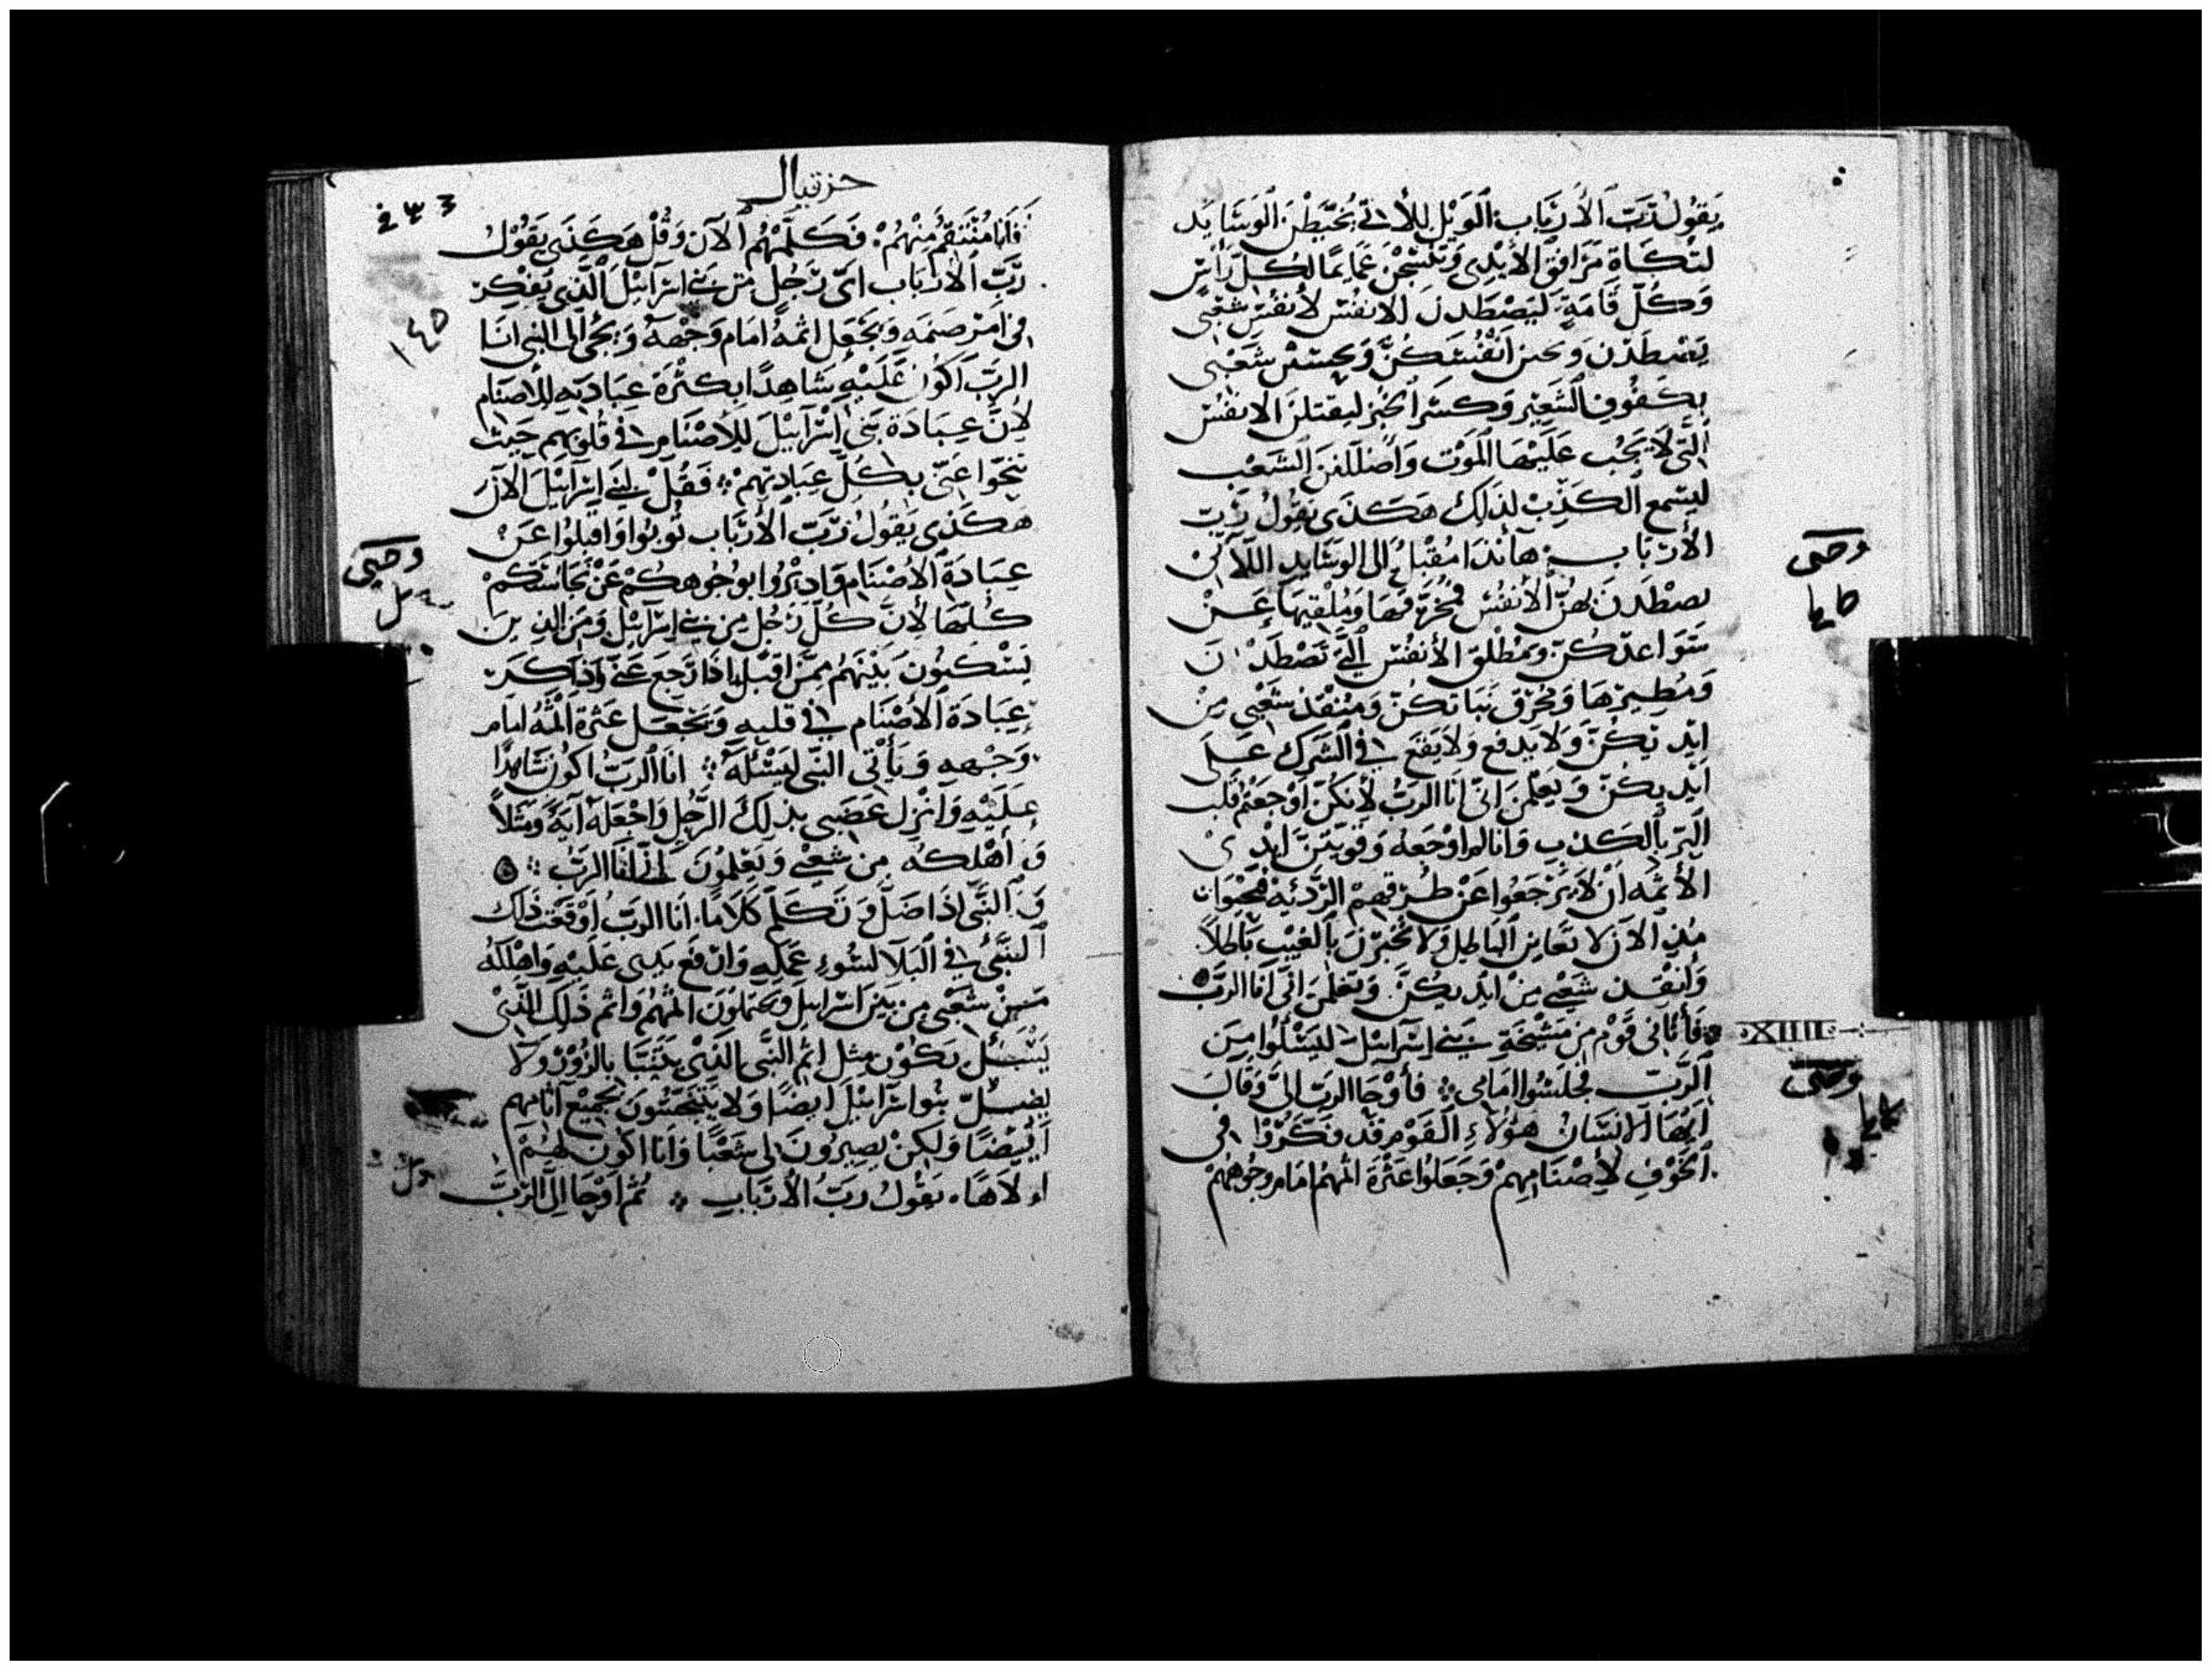 يَقُولُ رَبّ الأرْبَاب الوَيْل للأتي يُخَيّطْنَ الوَسَايد
لتكَاة مَرَافِقِ الأيْدِي وَتَنْسِجْنَ عَمَايمًا لِكُلِّ رَأس
وَكُلّ قَامَةٍ ليَصْطَدنَ الانفُس لأنفُس شَعْبي
يَصْطَدْنَ وَ أنْفُسَكُنَّ وَ شَعْبي
بكُفُوف الشَعِيْر وَكسَر الخُبز ليقتلنَ الانفُسَ
التي لاَ يَجُب عَلَيْهَا المَوْت وَاضللنَ الشَعْب
ليسْمع الكَذِبْ لذَلِكَ هَكَذَى يَقُولُ رَبّ
الأرْبَاب هَأنذا مُقْبلٌ الى الوسَايد اللاتى
يصْطَدنَ بهنَّ الأنفُس فمُخرّقهَا وَمُلقِيهَا عَنْ
سَوَاعدكُنّ وَمُطْلق الأنفُس التي تَصْطَدْنَ
وَمُطيرهَا وَمُخرق ثيَابَكُنّ وَمُنقذ شَعْبي مِنْ
ايْدِيكُنّ وَلا يدفع وَلا يَقَع في الشرَك عَلَى
ايْدِيكُنّ وَيَعْلَمْنَ انّي انَا الرَبُّ لأنكُنّ اوْجَعْتُمْ قلب
البَرّ بالكَذِبِ وَأنا لم اوْجَعهُ وَقَوَيْتنَّ ايْدِي
الأثمَه أنْ لا يَرْجَعُوا عَنْ طُرُقِهِمْ الرّدَيئة فيَحْيَوا
مُنذِ الآنَ لا تعَاينَ البَاطِل وَلا تُخبرْنَ بالغَيْبِ بَاطلاً
وَأنقذ شَعْبي مِنْ ايْدِيكُنَّ وَتَعْلَمْنَ انِّي انَا الرَبُّ
فَأتَانِي قَوْم مِنْ مَشْيَخَةِ بَني إسْرَآئِلَ ليَسْئَلُوا مِنَ
XIIII
الرَّبّ فجَلسُوا امَامي فأوْحَا الرَبّ اليَّ وَقَالَ
ايُّهَا الانسَانُ هؤلاءِ القَوْم قَد فكّرُوا في
الخَوْفِ لأِصْنَامِهِمْ وَجَعَلُوا عَثرَةَ اثمهُم امَام وجُوهِهُمْ
وصى
وصى
حزقيال
243
145
فَأنا مُنْتَقِمٌ مِنْهُمْ فَكَلّمْهُم الآنَ وَقُلْ هَكَذَى يَقُوْلُ
رَبّ الأرْبَاب ايّ رَجُلٍ مِنْ بَني اسْرَآئِلَ الّذي يُفَكِّر
في أمر صَنمه وَيَجْعَل اثمَهُ امَام وَجْهِهُ وَيجْي الى النبي انَا
الرَبّ اكُون عَلَيْهِ شَاهِدًا بكَثْرَة عِبَادَتهِ للأصنَام
لأنَّ عِبَادَة بَني اسْرَآئِلَ للأصْنَامِ في قُلوبهِم حَيْث
تنحّوا عَنّي بكُلّ عِبَادتِهِمْ فقُلْ لبَني اسْرَآئلَ الآنَ
هَكَذى يَقُولُ رَبّ الأرْبَاب تُوبُوا وَاقبلُوا عَنْ
عِبَادَة الأصْنَام وَادِيرُوا بوُجُوهِكُمْ عَنْ نجَاسَتكُمْ
كُلّهَا لأنَّ كُلّ رَجُلٍ مِن بَني اسْرَآئِل وَمِنَ الذِينَ
يَسْكنُونَ بَيْنَهُم مِمَّنْ اقبَل اذَا رَجَعَ عَنّي وَذكَرَ
عِبَادَة الأصْنَام في قلبهِ وَيَجْعَل عَثرَة اثمُهُ امَام
وَجْههِ وَيَأتي النبّي ليَسْئَلَهُ انَا الرَبّ اكُون شَاهِدًا
عَلَيْهِ وَانزِل غَضَبي بذلِكَ الرّجُلِ وَاجْعَلهُ آيَةً وَمَثَلاً
وَ أهْلكُهُ مِن شَعْبي وَيَعْلمُونَ انّي انَا الرَبّ
وَ النَبِّي إذَا ضَلَّ وَ تَكَلم كَلاَمًا انَا الرَبّ اوْقَعْت ذَلك
النبَّيّ في البَلآ لسُوءِ عَمَلِهِ وَارْفَع يَدِي عَلَيْهِ وَاهْلكُهُ
مِنْ شَعْبي مِن بَني اسْرَآئِل وَيَحْمِلوُنَ اثمَهُم وَاثم ذَلِكَ الذّي
يَسْئَل يَكُوْن مِثل اثم النَّبيّ الذّيْ يتنَبّا بالزُوْر وَلا
يضلّ بنُوا اسْرَآئِلَ ايضًا وَلا يَتَنَجَّسُونَ بجَمِيْع آثَامِهِم
ايْضًا وَلَكِنْ يَصِيرُونَ لي شَعْبًا وَانَا اكُون لهُمْ
الاهًا يَقُولُ ربّ الأرْبَاب ثُمّ اوْحَا اليّ الرَبّ
وصى